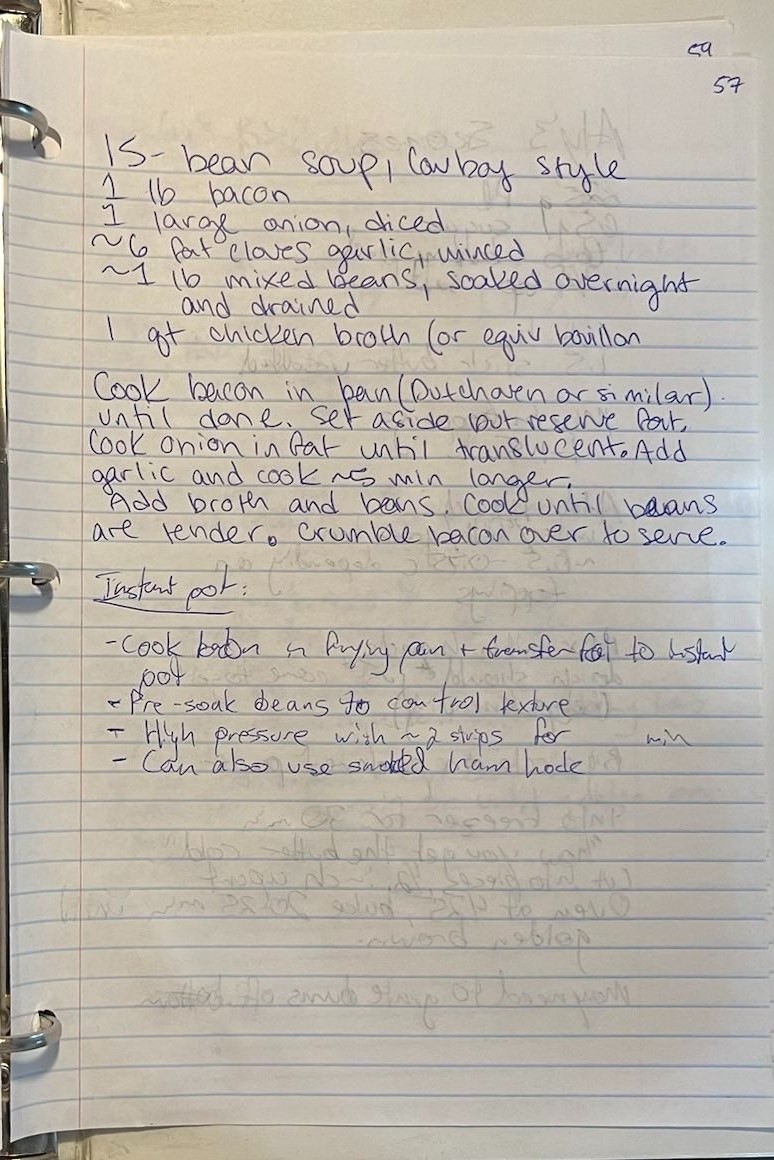 59
57
15- bean soup, Cowboy style
1 lb bacon
1 large onion, diced
~6 fat cloves garlic, minced
~1 lb mixed beans, soaked overnight
and drained
1 qt chicken broth (or equiv bouillon
Cook bacon in pan (Dutchoven or similar).
until done. Set aside but reserve fat.
Cook onion in fat until translucent. Add
garlic and cook ~5 min longer.
Add broth and beans. Cook until beans
are tender. Crumble bacon over to serve.
Instant pot:
- Cook bacon in frying pan + transfer fat to instant
pot
- Pre-soak beans to control texture
- High pressure with ~2 strips for min
- Can also use smoked ham hock